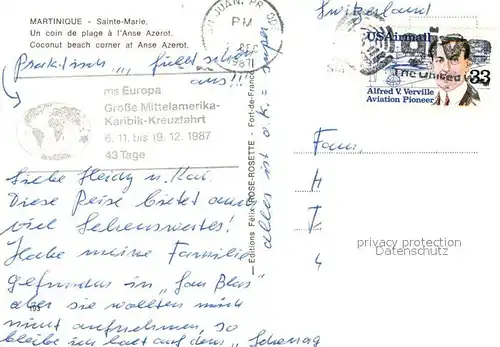 MARTINIQUE - Sainte-Marie.
Un coin de plage à l'Anse Azerot.
Coconut beach corner at Anse Azerot.
Praktisch,,, füllt schon
aus!!!
ms Europa
Große Mittelamerika-
Karibik-Kreuzfahrt
6. 11. bis 19. 12. 1987
43 Tage
Liebe Heidy u. Kai.
Diese Reise bietet auch
viel Sehenswertes!
Habe meine Familie
gefunden in „San Blas"
aber sie wollten mich
nicht aufnehmen, so
bleibe ich halt auf dem
193
Editions Félix ROSE-ROSETTE - Fort-de-France
alles ist o.k. =
JUAN, PR
PM
DEC
1987
Switzerland
USAirmail
The United
33
Alfred V. Verville
Aviation Pioneer
Fam.
H
T
4
privacy protection
Datenschutz